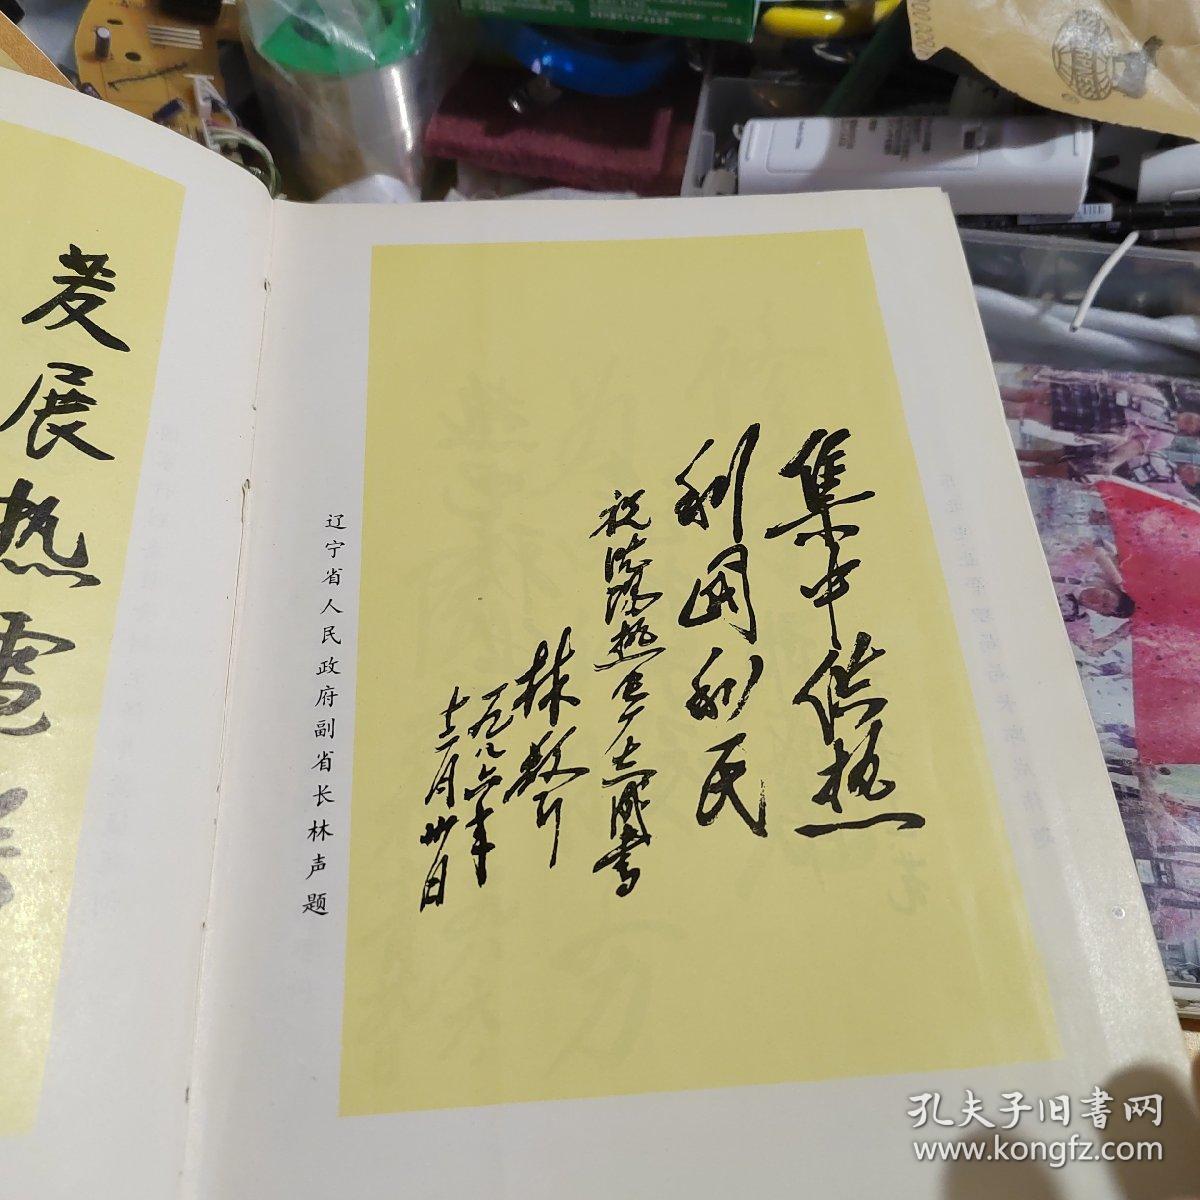 集中供热
利国利民
祝沈阳热电厂志成书
林声
一九八六年
十二月卅日
辽宁省人民政府副省长林声题
发展热電
孔夫子旧书网
www.kongfz.com